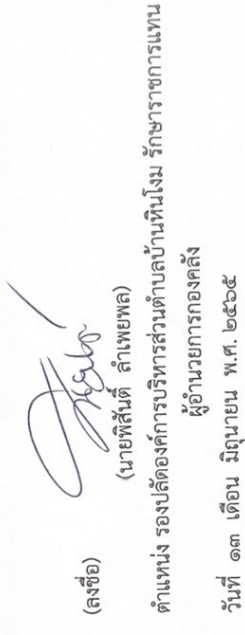 (ลงชื่อ)
(นายพิสันต์ ลำเพยพล)
ตำแหน่ง รองปลัดองค์การบริหารส่วนตำบลบ้านหินโงม รักษาราชการแทน
ผู้อำนวยการกองคลัง
วันที่ ๑๓ เดือน มิถุนายน พ.ศ. ๒๕๖๕